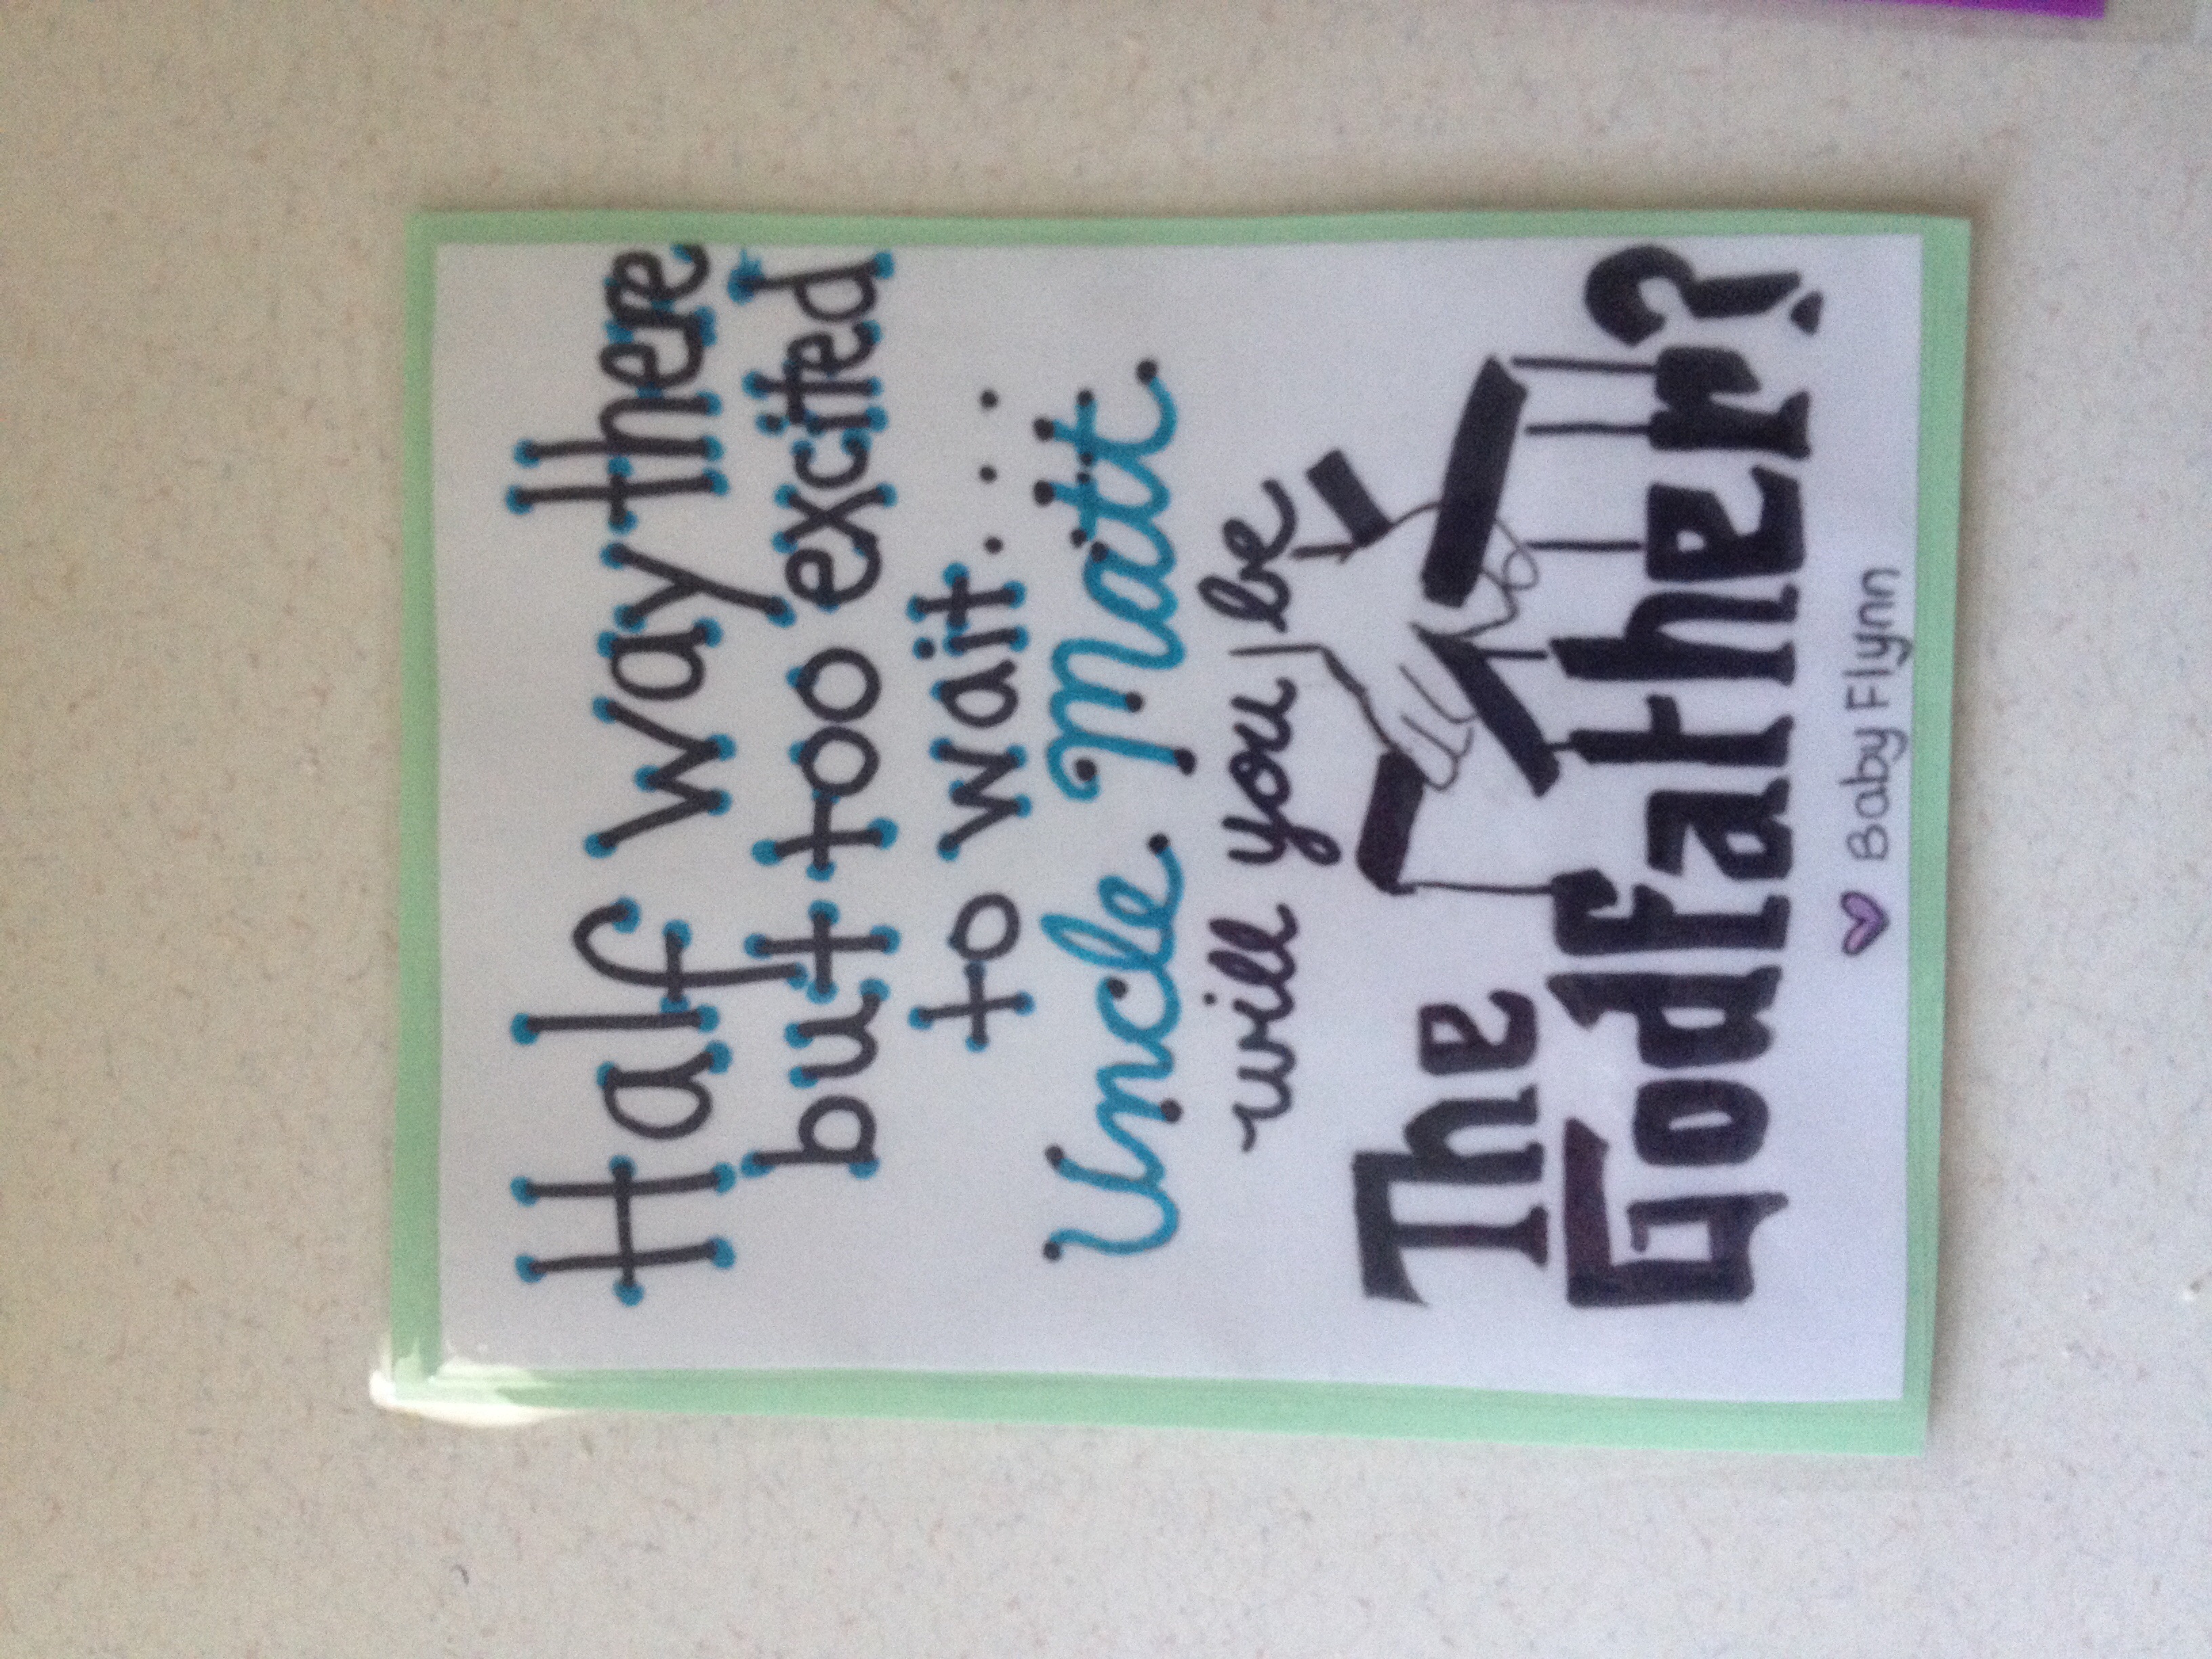 Half way there
but too excited
to wait...
Uncle Matt
will you be
The
Godfather?
Baby Flynn